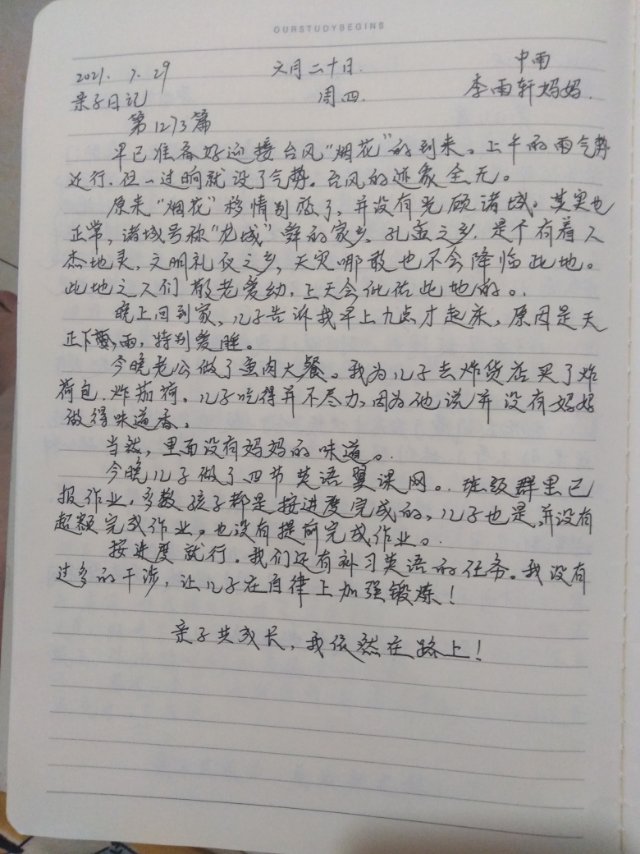 OURSTUDYBEGINS
2021.7.29 六月二十日. 中雨
亲子日记 周四. 李雨轩妈妈.
第1273篇
早已准备好迎接台风“烟花”的到来。上午的雨气势
还行.但一过晌就没了气势。台风的迹象全无。
原来“烟花”移情别恋了,并没有光顾诸城。其实也
正常,诸城号称“龙城”舜的家乡、孔孟之乡.是个有着人
杰地灵,文明礼仪之乡,天灾哪敢也不会降临此地。
此地之人们敬老爱幼,上天会保佑此地的。.
晚上回到家,儿子告诉我早上九点才起床,原因是天
正下雨,特别爱睡。
今晚老公做了鱼肉大餐。我为儿子去炸货店买了炸
荷包.炸茄荷.儿子吃得并不尽力,因为他说并没有妈妈
做得味道香。
当然,里面没有妈妈的味道。.
今晚儿子做了四节英语翼课网。.班级群里已
报作业,多数孩子都是按进度完成的,儿子也是,并没有
超额完成作业,也没有提前完成作业。.
按进度就行.我们还有补习英语的任务。我没有
过多的干涉,让儿子在自律上加强锻炼!
亲子共成长,我依然在路上!